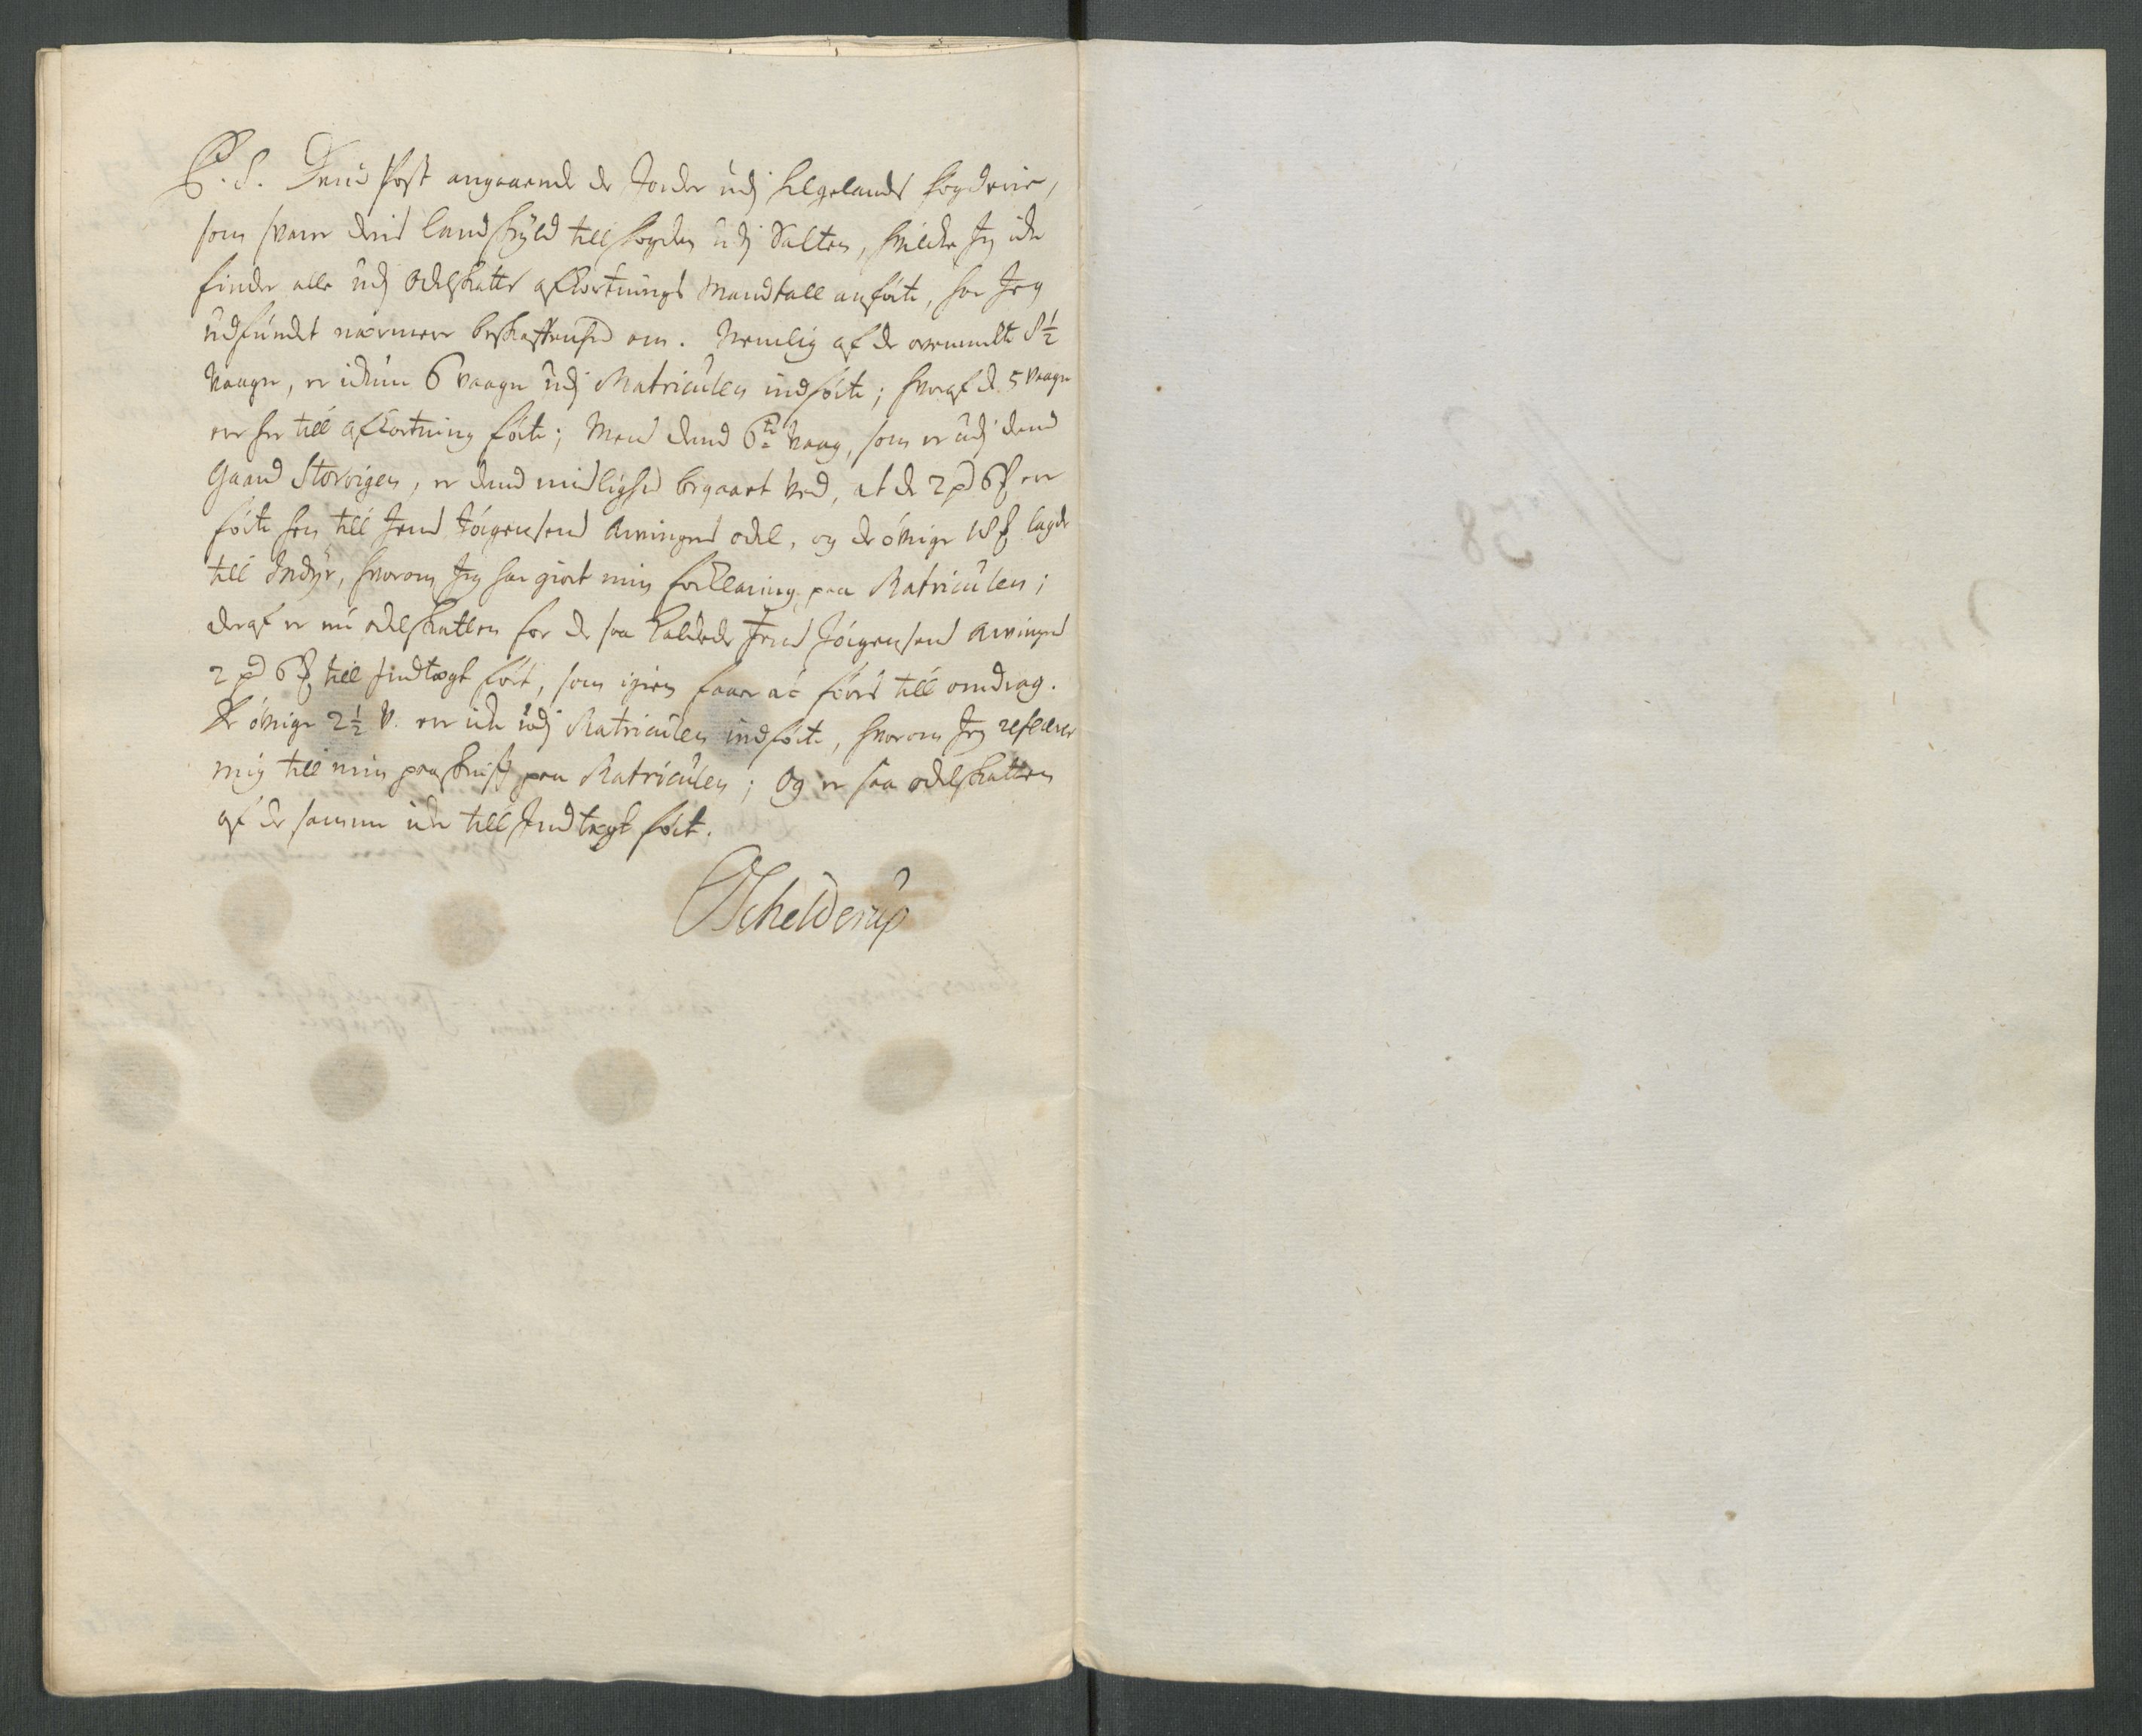 P.S. Dend Post angaaende de Jorder udj Helgelands fogderie,
som svarer deris landskyld till fogden udj Salten, hvilcke Jeg icke
finder alle udj Odelskatts afkortnings Mandtall anførte, har Jeg
udfundet nærmere beskaffenhed om. Nemlig af de ovenmelte 8½
Vaager, er ickun 6 vaager udj Matriculen indførte; hvoraf de 5 vaager
ere her till afkortning førte; Mens dend 6te vaag, som er udj dend
Gaard Storvigen, er dend mislighed begaaet ved, at de 2 pd 6 ℔ ere
førte hen till Jens Jørgensens Arvingers odel, og de øvrige 18 ℔ lagde
till Indyr, hvorom Jeg har giort min forklaring paa Matriculen;
deraf er nu odelskatten for de saa kaldede Jens Jørgensens Arvingers
2 pd 6 ℔ till Indtægt ført, som igien faaer at føris till omdrag.
De øvrige 2½ V. ere icke udj Matriculen indførte, hvorom Jeg refererer
mig till min paaskrifft paa Matriculen; Og er saa odelskatten
af de samme icke till Indtægt ført.
Schelderup